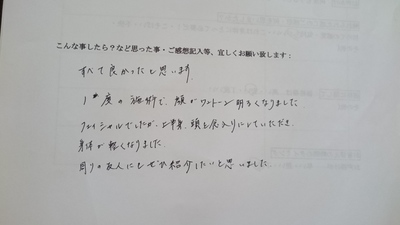 こんな事したら?など思った事・ご感想記入等、宜しくお願い致します:
すべて良かったと思います。
1度の施術で、顔がワントーン明るくなりました
フェイシャルでしたが、上半身、頭も念入りにしていただき、
身体が軽くなりました。
周りの友人にもぜひ紹介したいと思いました